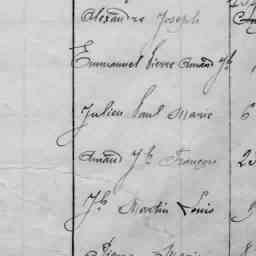 Alexandre Joseph
Emmanuel Pierre Amand Jh
Julien Paul Marie 6
Amand Jh François 23
Jh Martin Louis 9
Pierre Marie 8